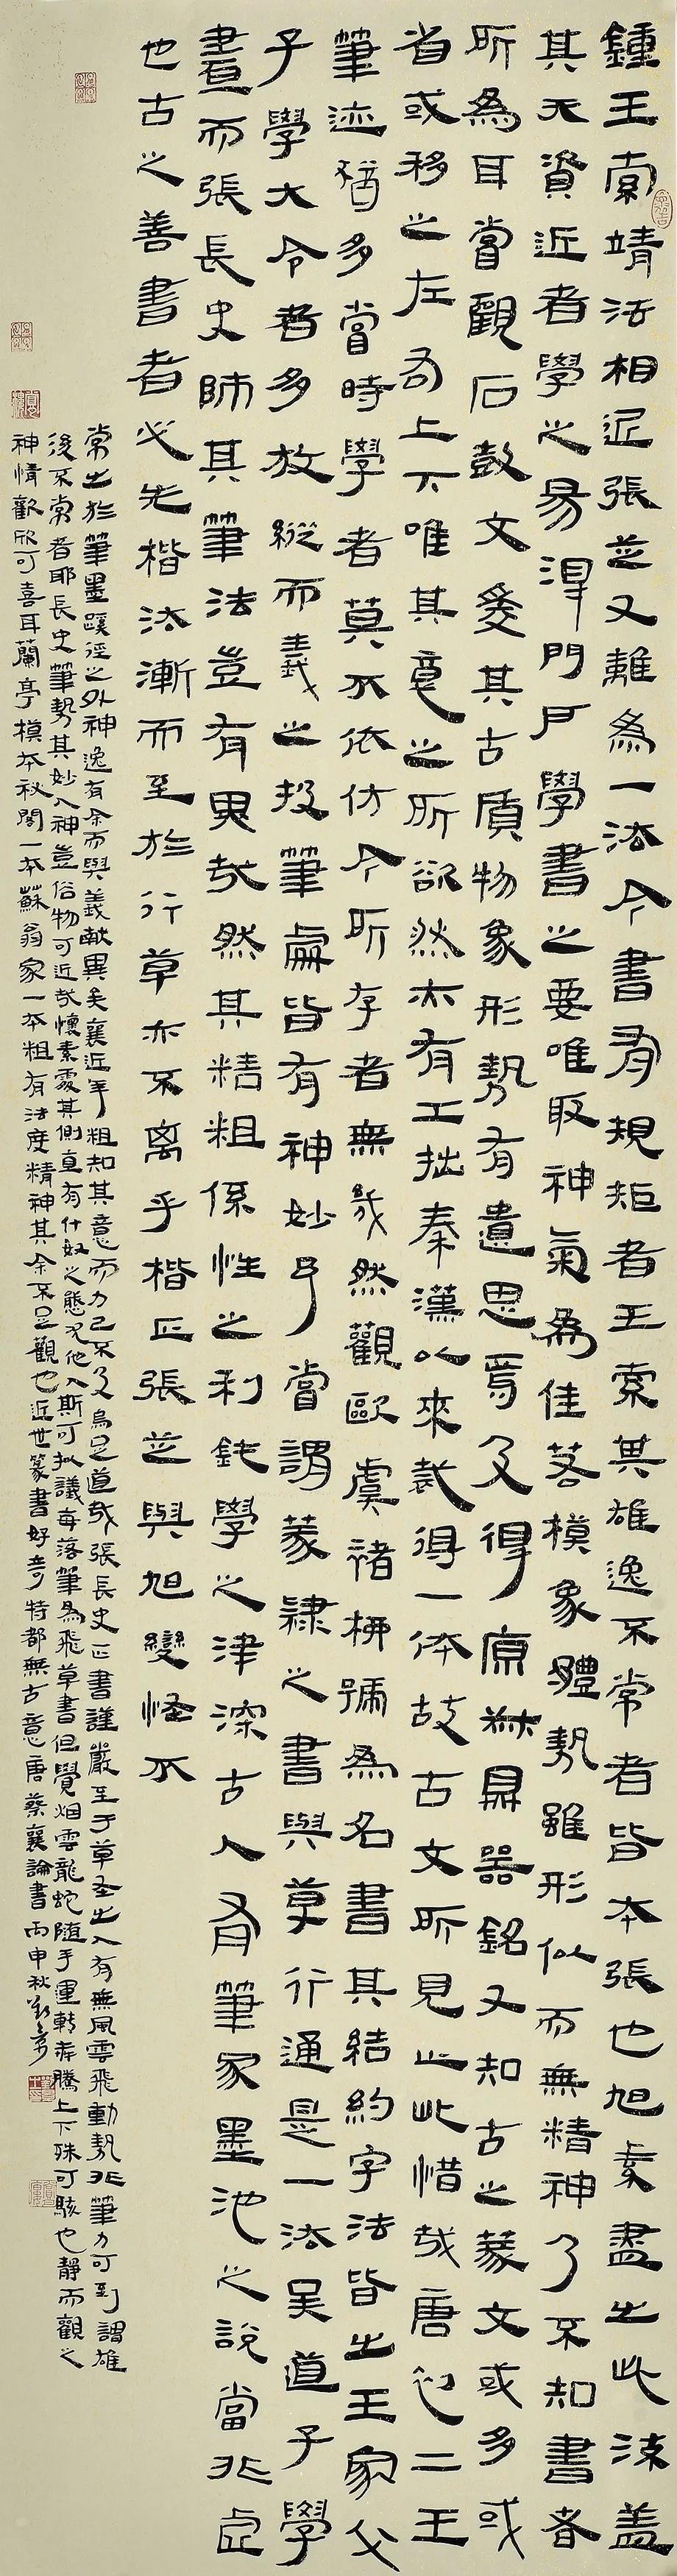 鍾王索靖法相近張芝又離為一法今書有規矩者王索其雄逸不常者皆本張也旭素盡出此法蓋
其天資近者學之易得門戶學書之要唯取神氣為佳若模象體勢雖形似而無精神乃不知書者
所為耳嘗觀石鼓文愛其古質物象形勢有遺思焉及得原叔鼎器銘又知古之篆文或多或
省或移之左右上下唯其意之所欲然亦有工拙秦漢以來裁得一体故古文所見止此惜哉唐初二王
筆迹猶多當時學者莫不依仿今所存者無幾然觀歐虞褚柳號為名書其結約字法皆出王家父
子學大令者多放縱而羲之投筆處皆有神妙予嘗謂篆隷之書與草行通是一法吴道子學
畫而張長史師其筆法豈有異哉然其精粗係性之利鈍學之津深古人有筆冢墨池之說當非虛
也古之善書者必先楷法漸而至於行草亦不离乎楷正張芝與旭變怪不
常出於筆墨蹊徑之外神逸有余而與羲献異矣襄近年粗知其意而力已不及烏足道哉張長史正書謹嚴至于草圣出入有無風雲飛動勢非筆力可到謂雄
後不常者耶長史筆勢其妙入神豈俗物可近哉懷素處其側直有什奴之態况他人斯可拟議每落筆為飛草書但覺烟雲龍蛇随手運轉奔騰上下殊可駭也靜而觀之
神情歡欣可喜耳蘭亭模本秘閣一本蘇翁家一本粗有法度精神其余不足觀也近世篆書好奇特都無古意唐蔡襄論書丙申秋